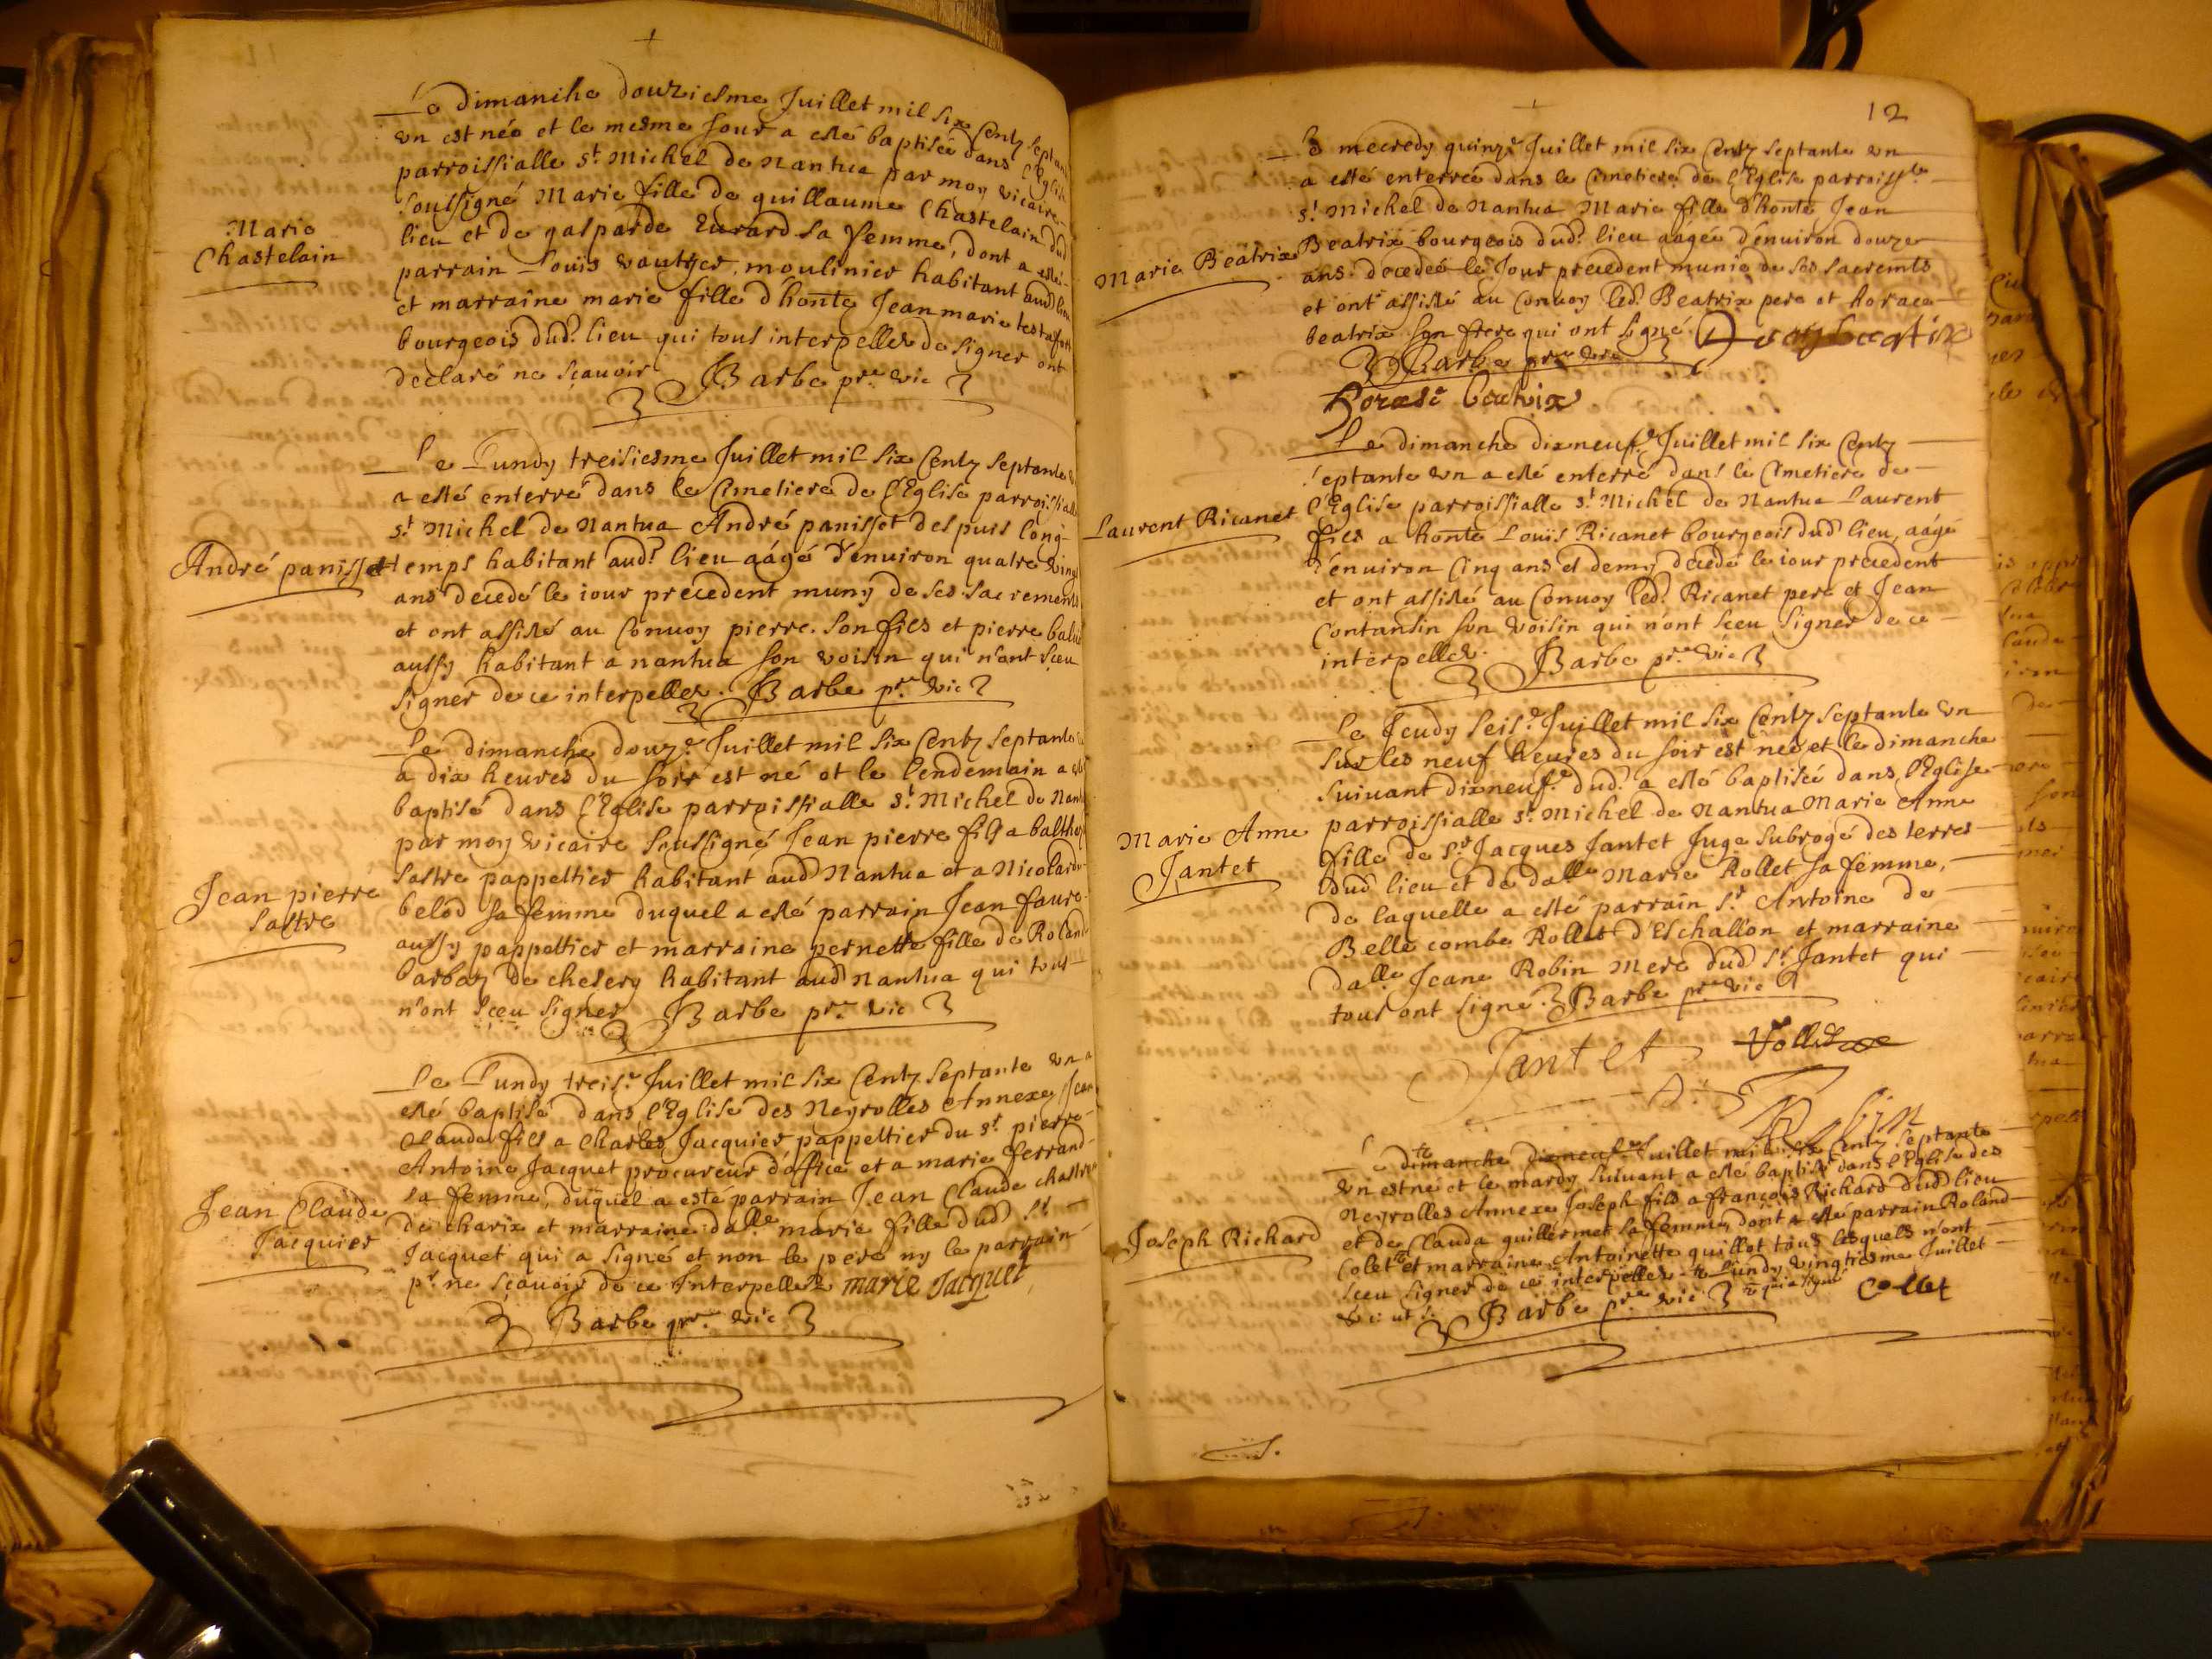 Le dimanche douziesme Juillet mil six centz septante
vn est née et le mesme jour a esté baptisée dans l'Eglise
parroissialle st. Michel de Nantua par moy vicaire
soussigné Marie fille de guillaume Chastelain dud
Marie
Chastelain
lieu et de gasparde Eurard sa femme, dont a esté
parrain Louis vautier, moulinier habitant aud lieu
et marraine marie fille d'honte Jean marie
bourgeois dud. lieu qui tous interpellez de signer ont
declaré ne sçauoir Barbe pre. vic
Le Lundy treisiesme Juillet mil six centz septante
a esté enterré dans le Cimetiere de l'Eglise parroissialle
st. Michel de Nantua André panisset despuis long-
André panisset
temps habitant aud. lieu aágé d'enuiron quatre vingt
ans decedé le iour precedent muny de ses sacrements
et ont assisté au Conuoy pierre son fils et pierre
aussy habitant a nantua son voisin qui n'ont sceu
signer de ce interpellez. Barbe pre. vic
Le dimanche douze. Juillet mil six centz septante
a dix heures du soir est né et le lendemain a esté
baptisé dans l'Eglise parroissialle st. Michel de Nantua
par moy vicaire soussigné Jean pierre filz a
Jean pierre
sastre
sastre pappettier habitant aud Nantua et a Nicolarde
belod sa femme duquel a esté parrain Jean faure
aussy pappettier et marraine pernette fille de Roland
barbaz de chesery habitant aud Nantua qui tous
n'ont sçeu signer Barbe pre. vic
Le Lundy treise. Juillet mil six Centz septante vn a
esté baptisé dans l'Eglise des Neyrolles Annexe Jean
Claude fils a Charles Jacquier pappettier du sr. pierre
Antoine Jacquet procureur d'office et a marie ferrand
Jean Claude
Jacquier
sa femme, duquel a esté parrain Jean Claude
de charix et marraine dalle marie fille dud sr
Jacquet qui a signé et non le pere ny le parrain
pr. ne sçauoir de ce Interpellez marie Jacquet
Barbe pre. vic
12
Le mecredy quinze Juillet mil six Centz septante vn
a esté enterrée dans le cimetiere de l'Eglise parroissle
st. Michel de Nantua Marie fille d'honte Jean
Marie Beatrix
Beatrix bourgeois dud. lieu aagée d'enuiron douze
ans decedeé le Jour precedent munie de ses sacremts
et ont assisté au Conuoy led. Beatrix pere et horace
beatrix son frere qui ont signé
Barbe pre vic
beatrix
Le dimanche dixneufe Juillet mil six Centz
septante vn a esté enterré dans le Cimetiere de
l'Eglise parroissialle st. Michel de Nantua Laurent
Laurent Ricanet
fils a honte Louis Ricanet bourgeois dud lieu, aágé
d'enuiron Cinq ans et demy decedé le iour precedent
et ont assisté au Conuoy led. Ricanet pere et Jean
Contansin son voisin qui n'ont sceu signer de ce
interpellez. Barbe pre. vic
Le Jeudy seise. Juillet mil six Centz septante vn
sur les neuf heures du soir est neé et le dimanche
suiuant dixneufe. dud. a esté baptiseé dans l'Eglise
parroissialle st. Michel de Nantua Marie Anne
Marie Anne
Jantet
fille de sr. Jacques Jantet Juge subrogé des terres
dud lieu et de dalle Marie Rollet sa femme,
de laquelle a esté parrain sr. Antoine de
Belle combe Rollet d'Eschallon et marraine
dalle Jeane Robin mere dud sr. Jantet qui
tous ont signé. Barbe pre. vic
Jantet
Robin
Le dimanche dixneufe Juillet mil six Centz septante
vn est né et le mardy suiuant a esté baptisé dans l'Eglise des
Neyrolles Annexe Joseph fils a françois Richard dud lieu
Joseph Richard
et de Clauda guillermet sa femme, dont a esté parrain Roland
Colet et marraine Antoinette guillot tous lesquels n'ont
sceu signer de ce interpellez Lundy vingtiesme Juillet
Barbe pre. vic
Collet